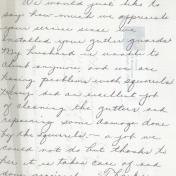 We would just like to
say how much we appreciate
your service since we
installed your gutter guards.
My husband is unable to
climb anymore and we are
having problems with squirrels.
did an excellent job
of cleaning the gutters and
repairing some damage done
by the squirrels, - a job we
could not do but thanks to
it is taken care of and